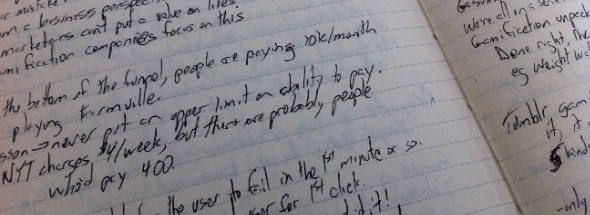 mistake
a business perspec
marketers can't put a value on likes
mification companies focus on this
the bottom of the funnel, people are paying 10k/month
playing Farmville.
sson → never put an upper limit on ability to pay.
NYT charges $4/week, but there are probably people
who'd pay 400.
the user to fail in the 1st minute or so.
for 1st click.
We're all in a
Gamification unpack
Done right, the
eg Weight Wat
Tumblr gam
it, it
only